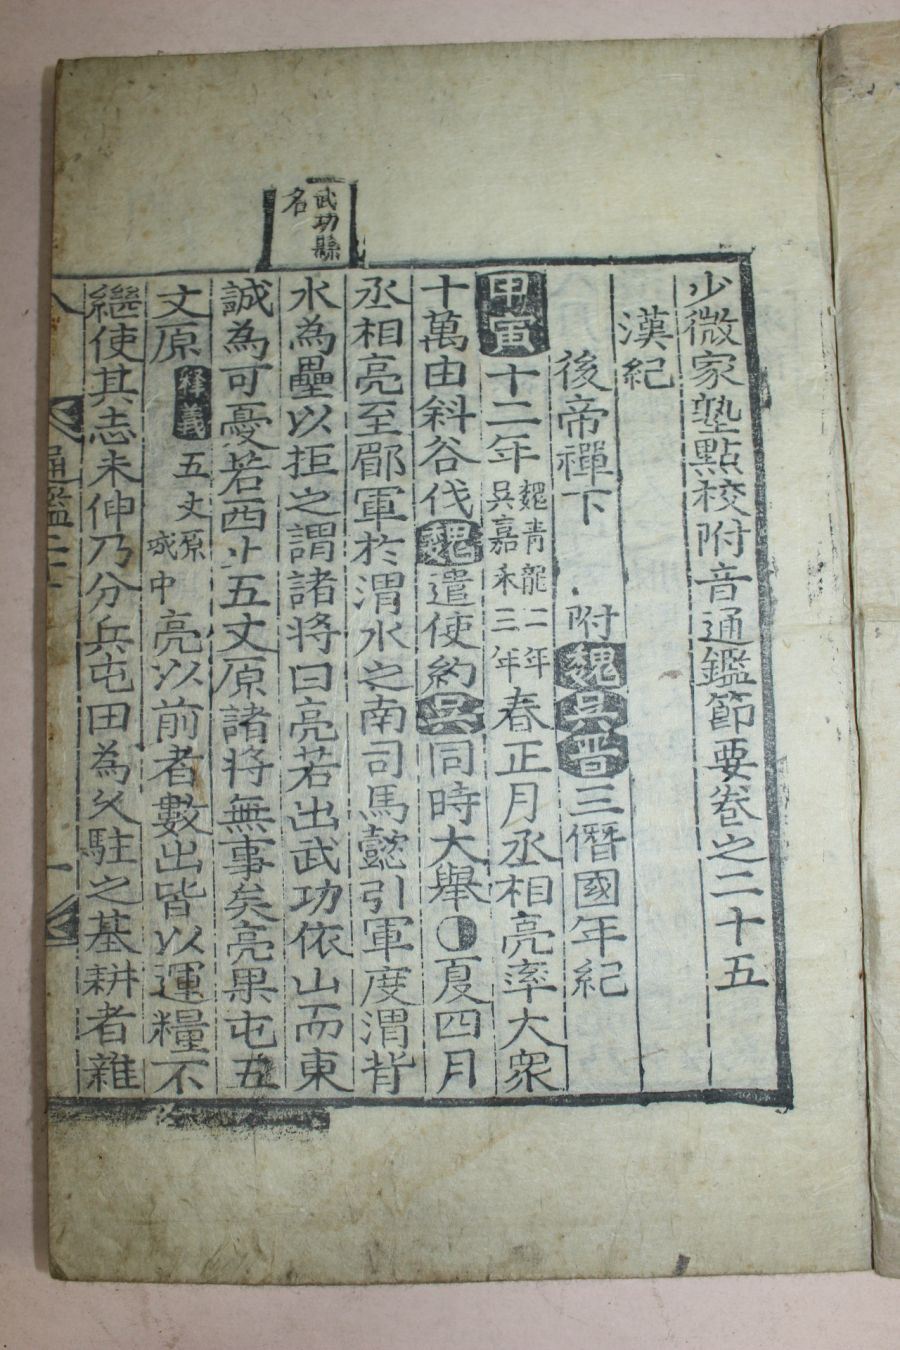 少微家塾點校附音通鑑節要卷之二十五
漢紀
後帝禪下 附魏吳晉三僭國年紀
甲寅十二年魏青龍二年吳嘉禾三年春正月丞相亮率大衆
十萬由斜谷伐魏遣使約吳同時大舉夏四月
丞相亮至郿軍於渭水之南司馬懿引軍度渭背
水為壘以拒之謂諸將曰亮若出武功依山而東
武功縣名
誠為可憂若西上五丈原諸將無事矣亮果屯五
丈原釋義五丈原中亮以前者數出皆以運糧不
繼使其志未伸乃分兵屯田為久駐之基耕者雜
通鑑二十